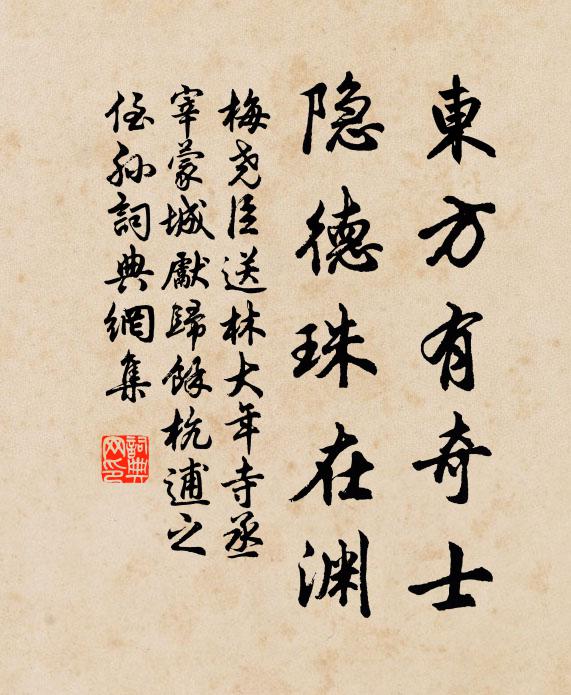 東方有奇士
隐德珠在渊
梅尧臣送林大年寺丞
宰蒙城獻歸餘杭逋之
侄孫詞典網集
詞典
网印